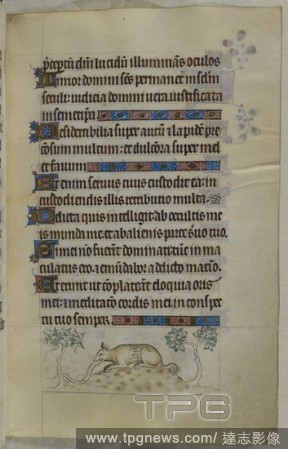 preceptum dni lucidum illuminans oculos
Timor domini scs permanet in sclm
seculi: iudicia domini uera iustificata
in semetipsa
Desiderabilia super aurum & lapidem pre
ciosum multum: et dulciora super mel
et fauum
Etenim seruus tuus custodit ea: in
custodiendis illis retributio multa
Delicta quis intelligit: ab occultis me
is munda me: et ab alienis parce seruo tuo.
Si mei non fuerint dominati tunc inma
culatus ero: et emundabor a delicto maximo.
Et erunt ut complaceant eloquia oris
mei: et meditatio cordis mei in conspec
tu tuo semper
TPG
www.tpgnews.com/達志影像